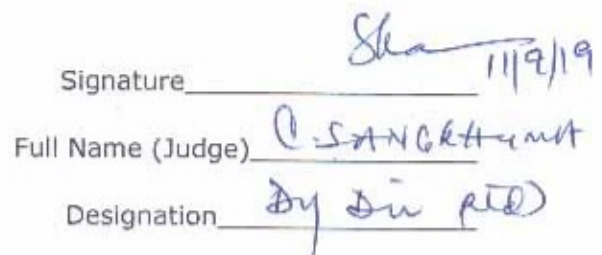 Signature 11/9/19
Full Name (Judge) C. SANGKHUMA
Designation Dy Dir (rtd)